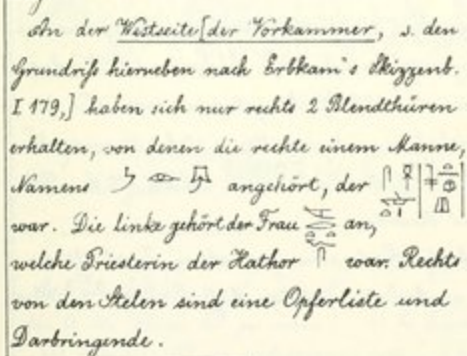 An der Westseite [der Vorkammer, s. den
Grundriſs hierneben nach Erbkam's Skizzenb.
I 179,] haben sich nur rechts 2 Blendthüren
erhalten, von denen die rechte einem Manne,
Namens angehört, der
war. Die linke gehört der Frau an,
welche Priesterin der Hathor war. Rechts
von den Stelen sind eine Opferliste und
Darbringende.